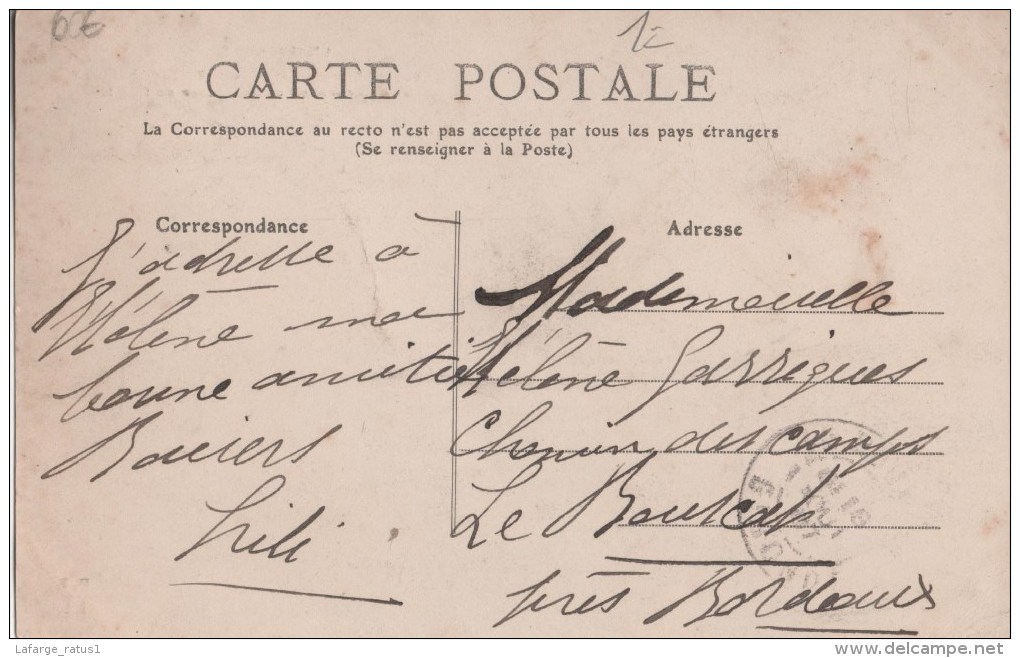 66
1
CARTE POSTALE
La Correspondance au recto n'est pas acceptée par tous les pays étrangers
(Se renseigner à la Poste)
Correspondance
J'adresse a
Hélène ma
bonne amitié
Baisers
Lili
Adresse
Mademoiselle
Hélène Garrigues
Chemin des camps
Le Bouscat
près Bordeaux
Lafarge_ratus1
delcampe.net